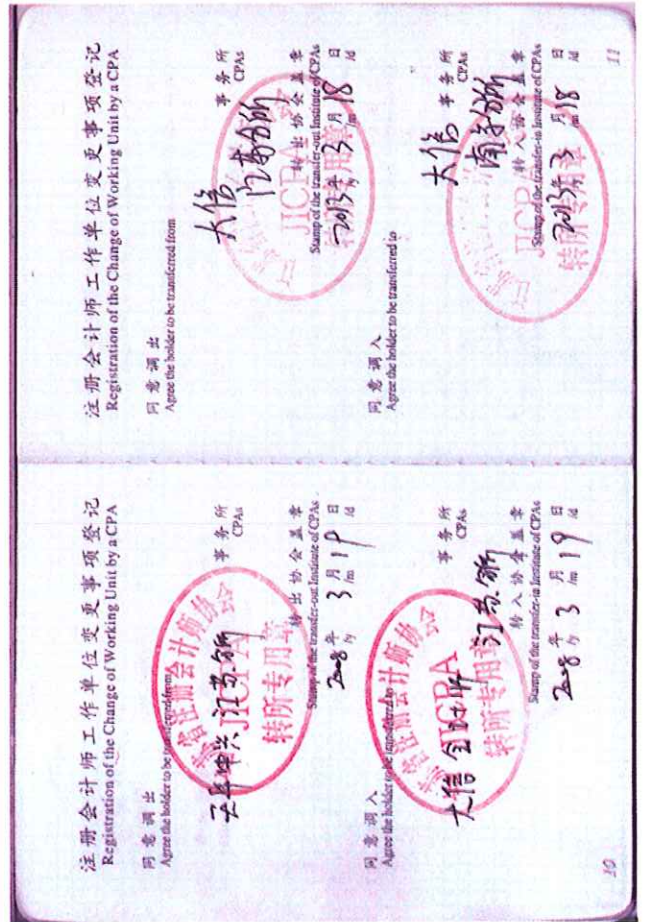 注册会计师工作单位变更事项登记
Registration of the Change of Working Unit by a CPA
同意调出
Agree the holder to be transferred from
江苏所
事务所
CPAs
JICPA
转所专用章
转出协会盖章
Stamp of the transfer-out Institute of CPAs
2008年 3月 19日
/y /m /d
同意调入
Agree the holder to be transferred to
大信 江苏所
事务所
CPAs
JICPA
转所专用章
转入协会盖章
Stamp of the transfer-in Institute of CPAs
2008年 3月 19日
/y /m /d
10
注册会计师工作单位变更事项登记
Registration of the Change of Working Unit by a CPA
同意调出
Agree the holder to be transferred from
大信
江苏分所
事务所
CPAs
JICPA
转所专用章
转出协会盖章
Stamp of the transfer-out Institute of CPAs
2013年 3月 18日
/y /m /d
同意调入
Agree the holder to be transferred to
大信
南京分所
事务所
CPAs
JICPA
转所专用章
转入协会盖章
Stamp of the transfer-in Institute of CPAs
2013年 3月 18日
/y /m /d
11